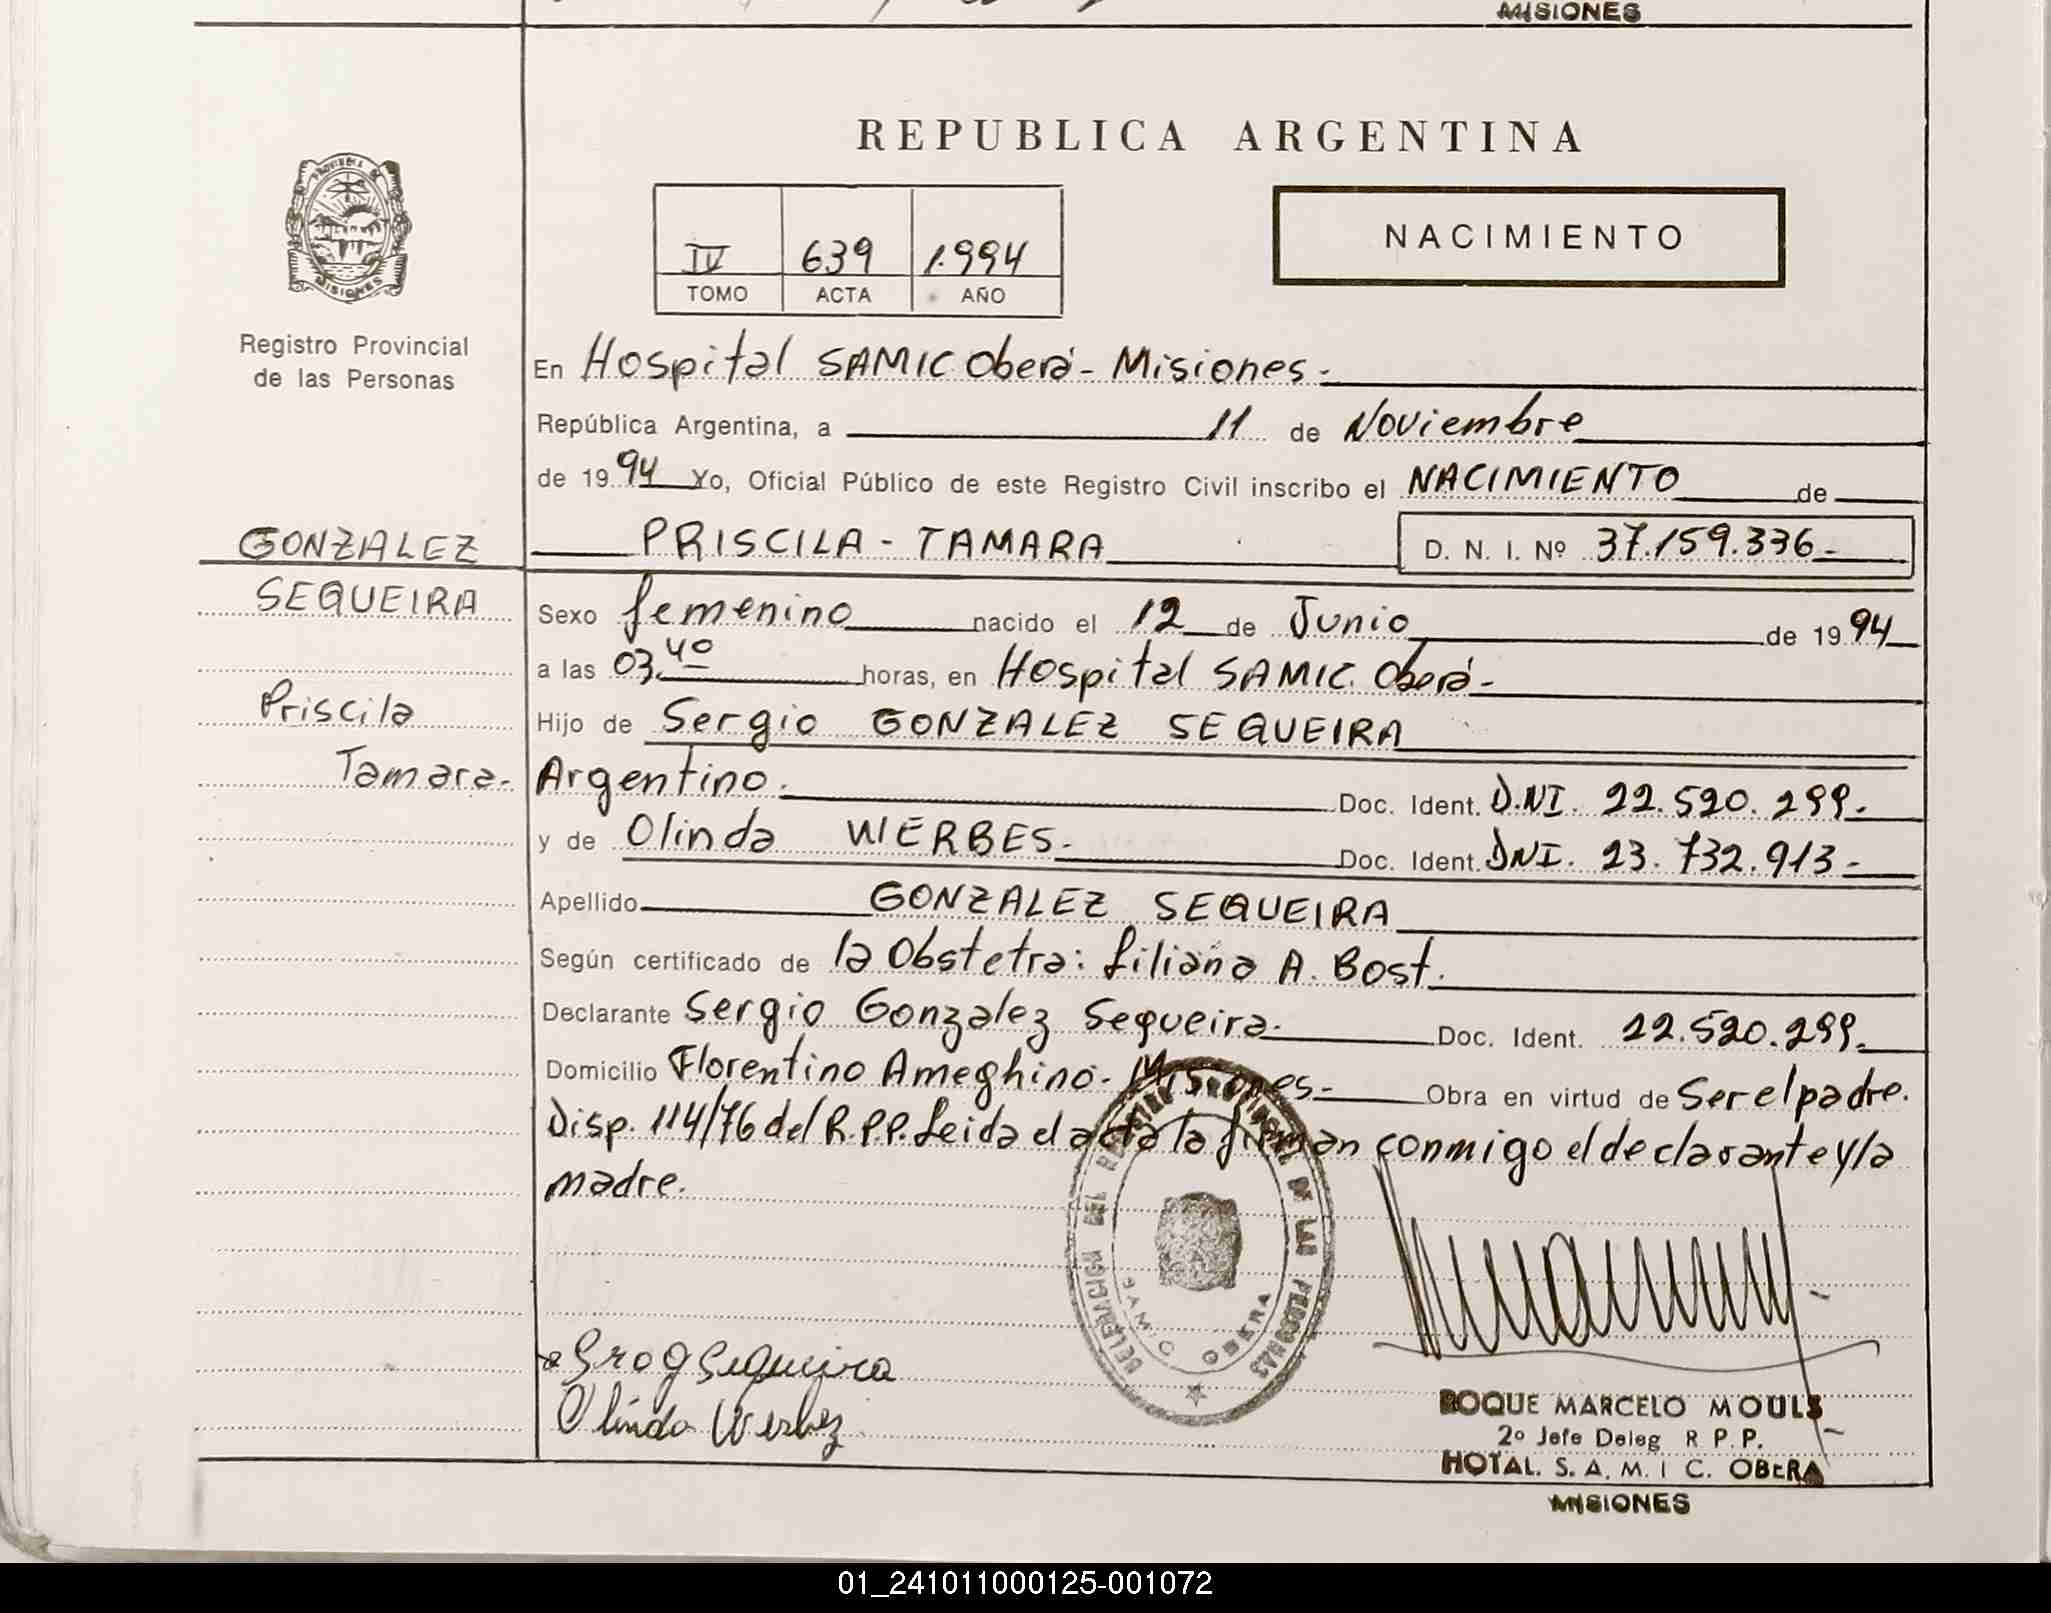 MISIONES
REPUBLICA ARGENTINA
PROVINCIA DE
MISIONES
IV 639 1.994
TOMO ACTA AÑO
NACIMIENTO
Registro Provincial
de las Personas
En Hospital SAMIC Oberá - Misiones.
República Argentina, a 11 de Noviembre
de 1994 Yo, Oficial Público de este Registro Civil inscribo el NACIMIENTO de
GONZALEZ PRISCILA - TAMARA D. N. I. Nº 37.159.336.-
SEQUEIRA Sexo femenino nacido el 12 de Junio de 1994
a las 03.40 horas, en Hospital SAMIC. Oberá-
Priscila Hijo de Sergio GONZALEZ SEQUEIRA
Tamara.- Argentino. Doc. Ident. D.NI. 22.520.299.
y de Olinda WERBES. Doc. Ident. DNI. 23.732.913-
Apellido GONZALEZ SEQUEIRA
Según certificado de la Obstetra: Liliana A. Bost.
Declarante Sergio Gonzalez Sequeira. Doc. Ident. 22.520.299.
Domicilio Florentino Ameghino- Misiones- Obra en virtud de Ser el padre.
Disp. 114/76 del R.P.P. Leida el acta la firman conmigo el declarante y la
madre.
DELEGACION DEL REGISTRO PROVINCIAL DE LAS PERSONAS
SAMIC OBERA
Sequeira
Olinda Werbez
ROQUE MARCELO MOULS
2º Jefe Deleg R P. P.
HOTAL. S. A. M. I C. OBERA
MISIONES
01_241011000125-001072